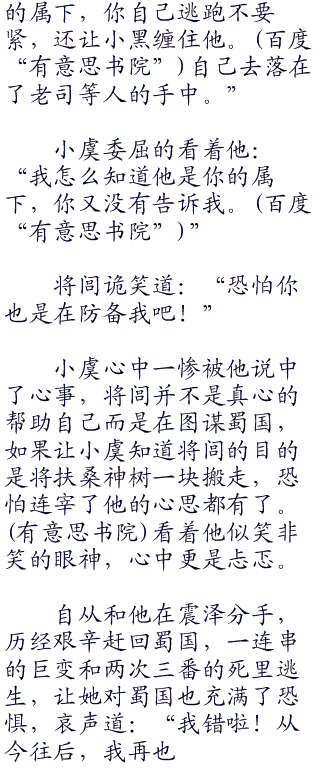 的属下，你自己逃跑不要
紧，还让小黑缠住他。(百度
“有意思书院”)自己去落在
了老司等人的手中。”
小虞委屈的看着他：
“我怎么知道他是你的属
下，你又没有告诉我。(百度
“有意思书院”)”
将闾诡笑道：“恐怕你
也是在防备我吧！”
小虞心中一惨被他说中
了心事，将闾并不是真心的
帮助自己而是在图谋蜀国，
如果让小虞知道将闾的目的
是将扶桑神树一块搬走，恐
怕连宰了他的心思都有了。
(有意思书院)看着他似笑非
笑的眼神，心中更是忐忑。
自从和他在震泽分手，
历经艰辛赶回蜀国，一连串
的巨变和两次三番的死里逃
生，让她对蜀国也充满了恐
惧，哀声道：“我错啦！从
今往后，我再也